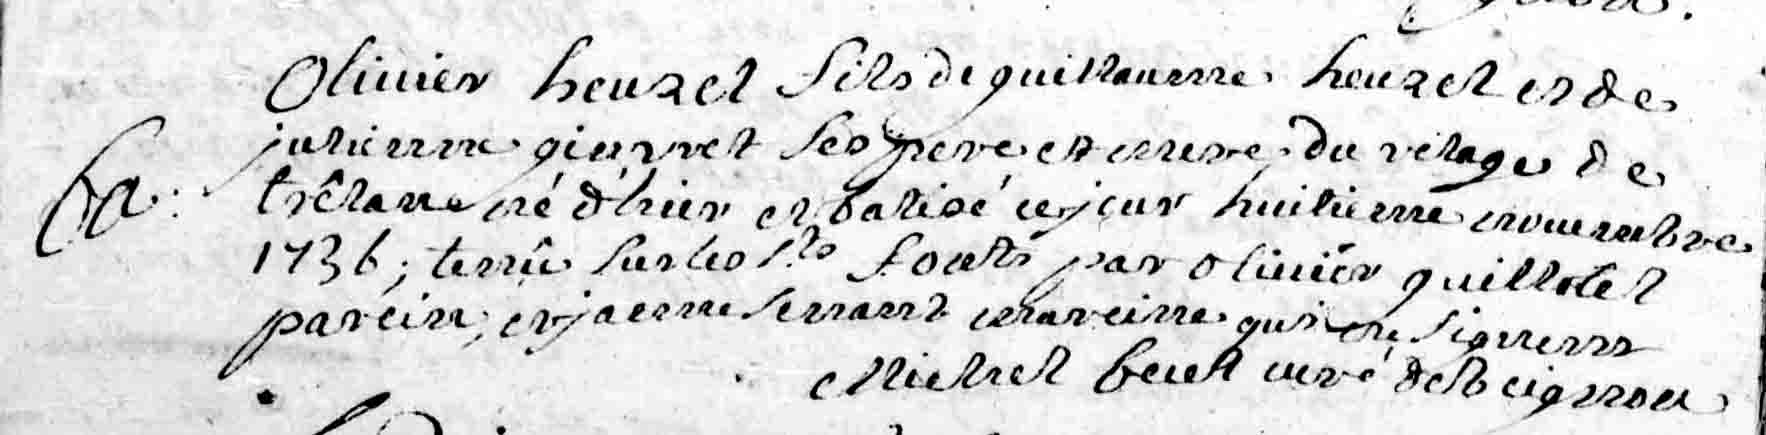 Olivier heuzel fils de guillaume heuzel et de
julienne gierret ses pere et mere, du vilage de
trêlane né d'hier et batisé ce jour huitieme novembre
1736, tenu sur les sts fonts par olivier guillotel
parein, et jaenne serrant mareine qui ne signent
Michel curé de beignon
Ba: